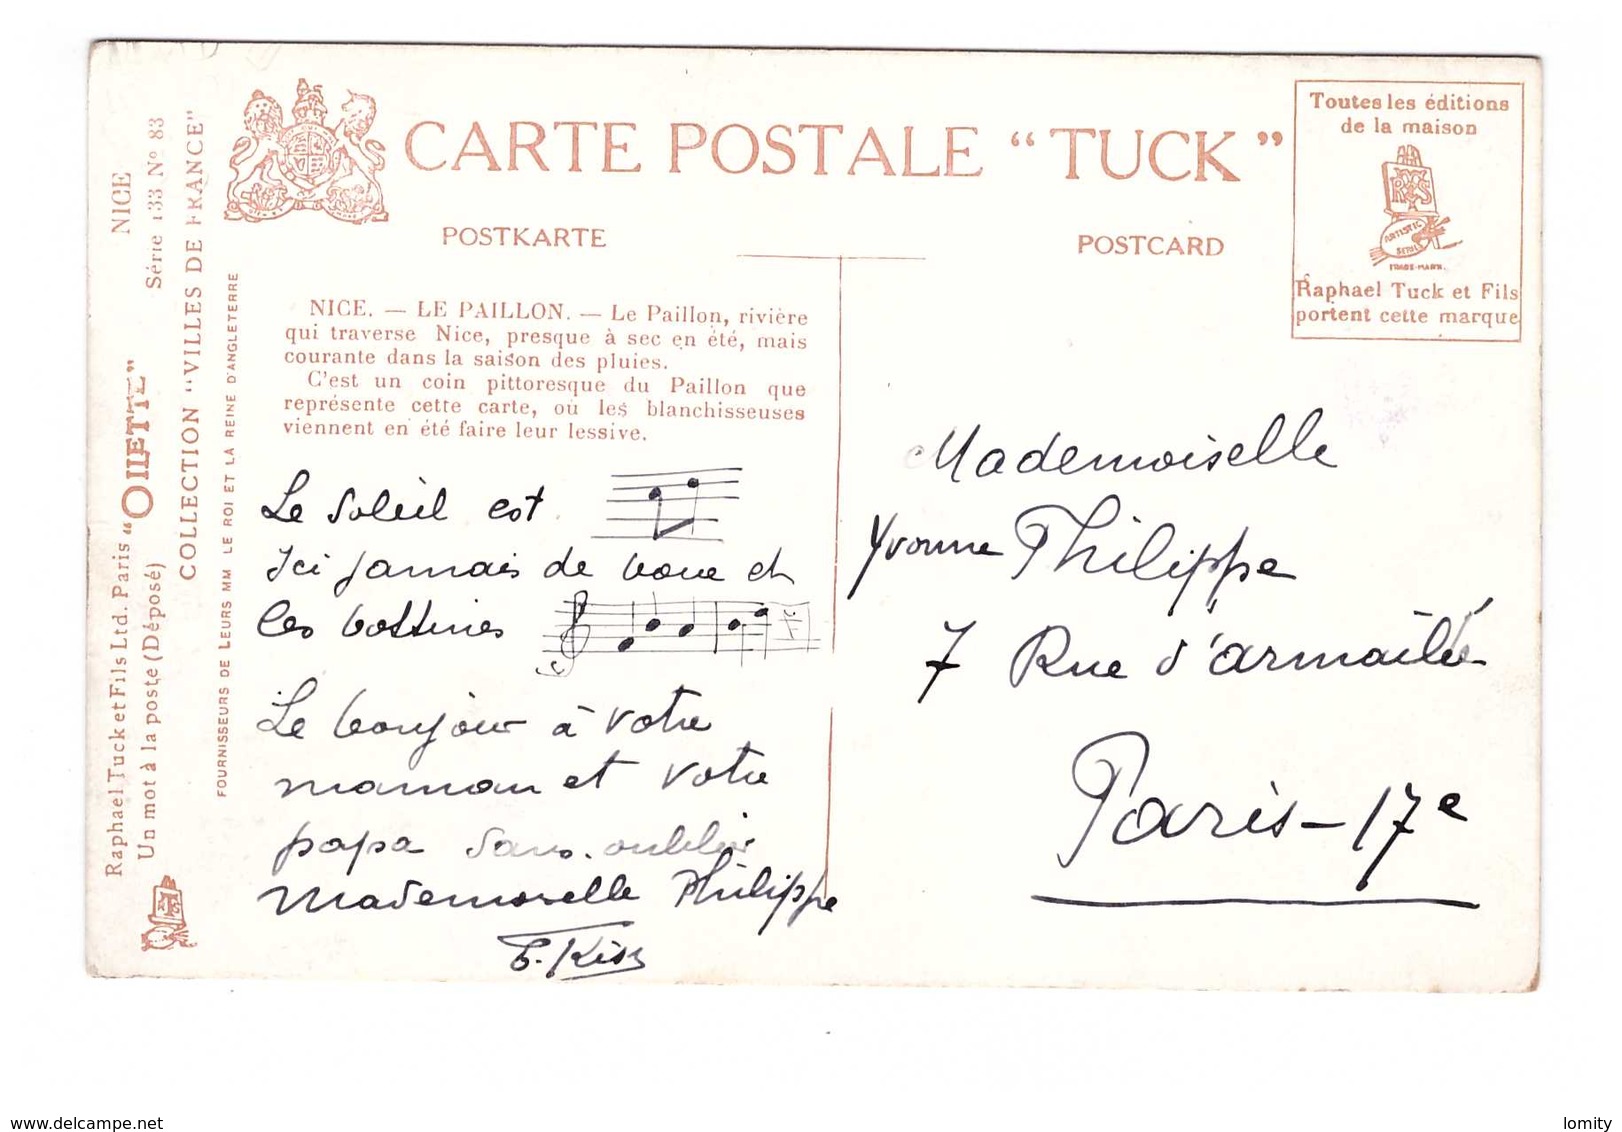 CARTE POSTALE “TUCK”
POSTKARTE
POSTCARD
Toutes les éditions
de la maison
RTS
ARTISTIC
SERIES
TRADE-MARK.
Raphael Tuck et Fils
portent cette marque
Raphael Tuck et Fils Ltd. Paris “OILETTE” NICE
Un mot à la poste (Déposé) Série 133 Nº 83
COLLECTION “VILLES DE FRANCE”
FOURNISSEURS DE LEURS MM LE ROI ET LA REINE D'ANGLETERRE
NICE. — LE PAILLON. — Le Paillon, rivière
qui traverse Nice, presque à sec en été, mais
courante dans la saison des pluies.
C'est un coin pittoresque du Paillon que
représente cette carte, où les blanchisseuses
viennent en été faire leur lessive.
Le soleil est
Ici jamais de boue et
les bottines
Le bonjour à votre
maman et votre
papa sans oublier
Mademoiselle Philippe
Kiss
Mademoiselle
Yvonne Philippe
7 Rue d'armaillé
Paris - 17e
www.delcampe.net
lomity